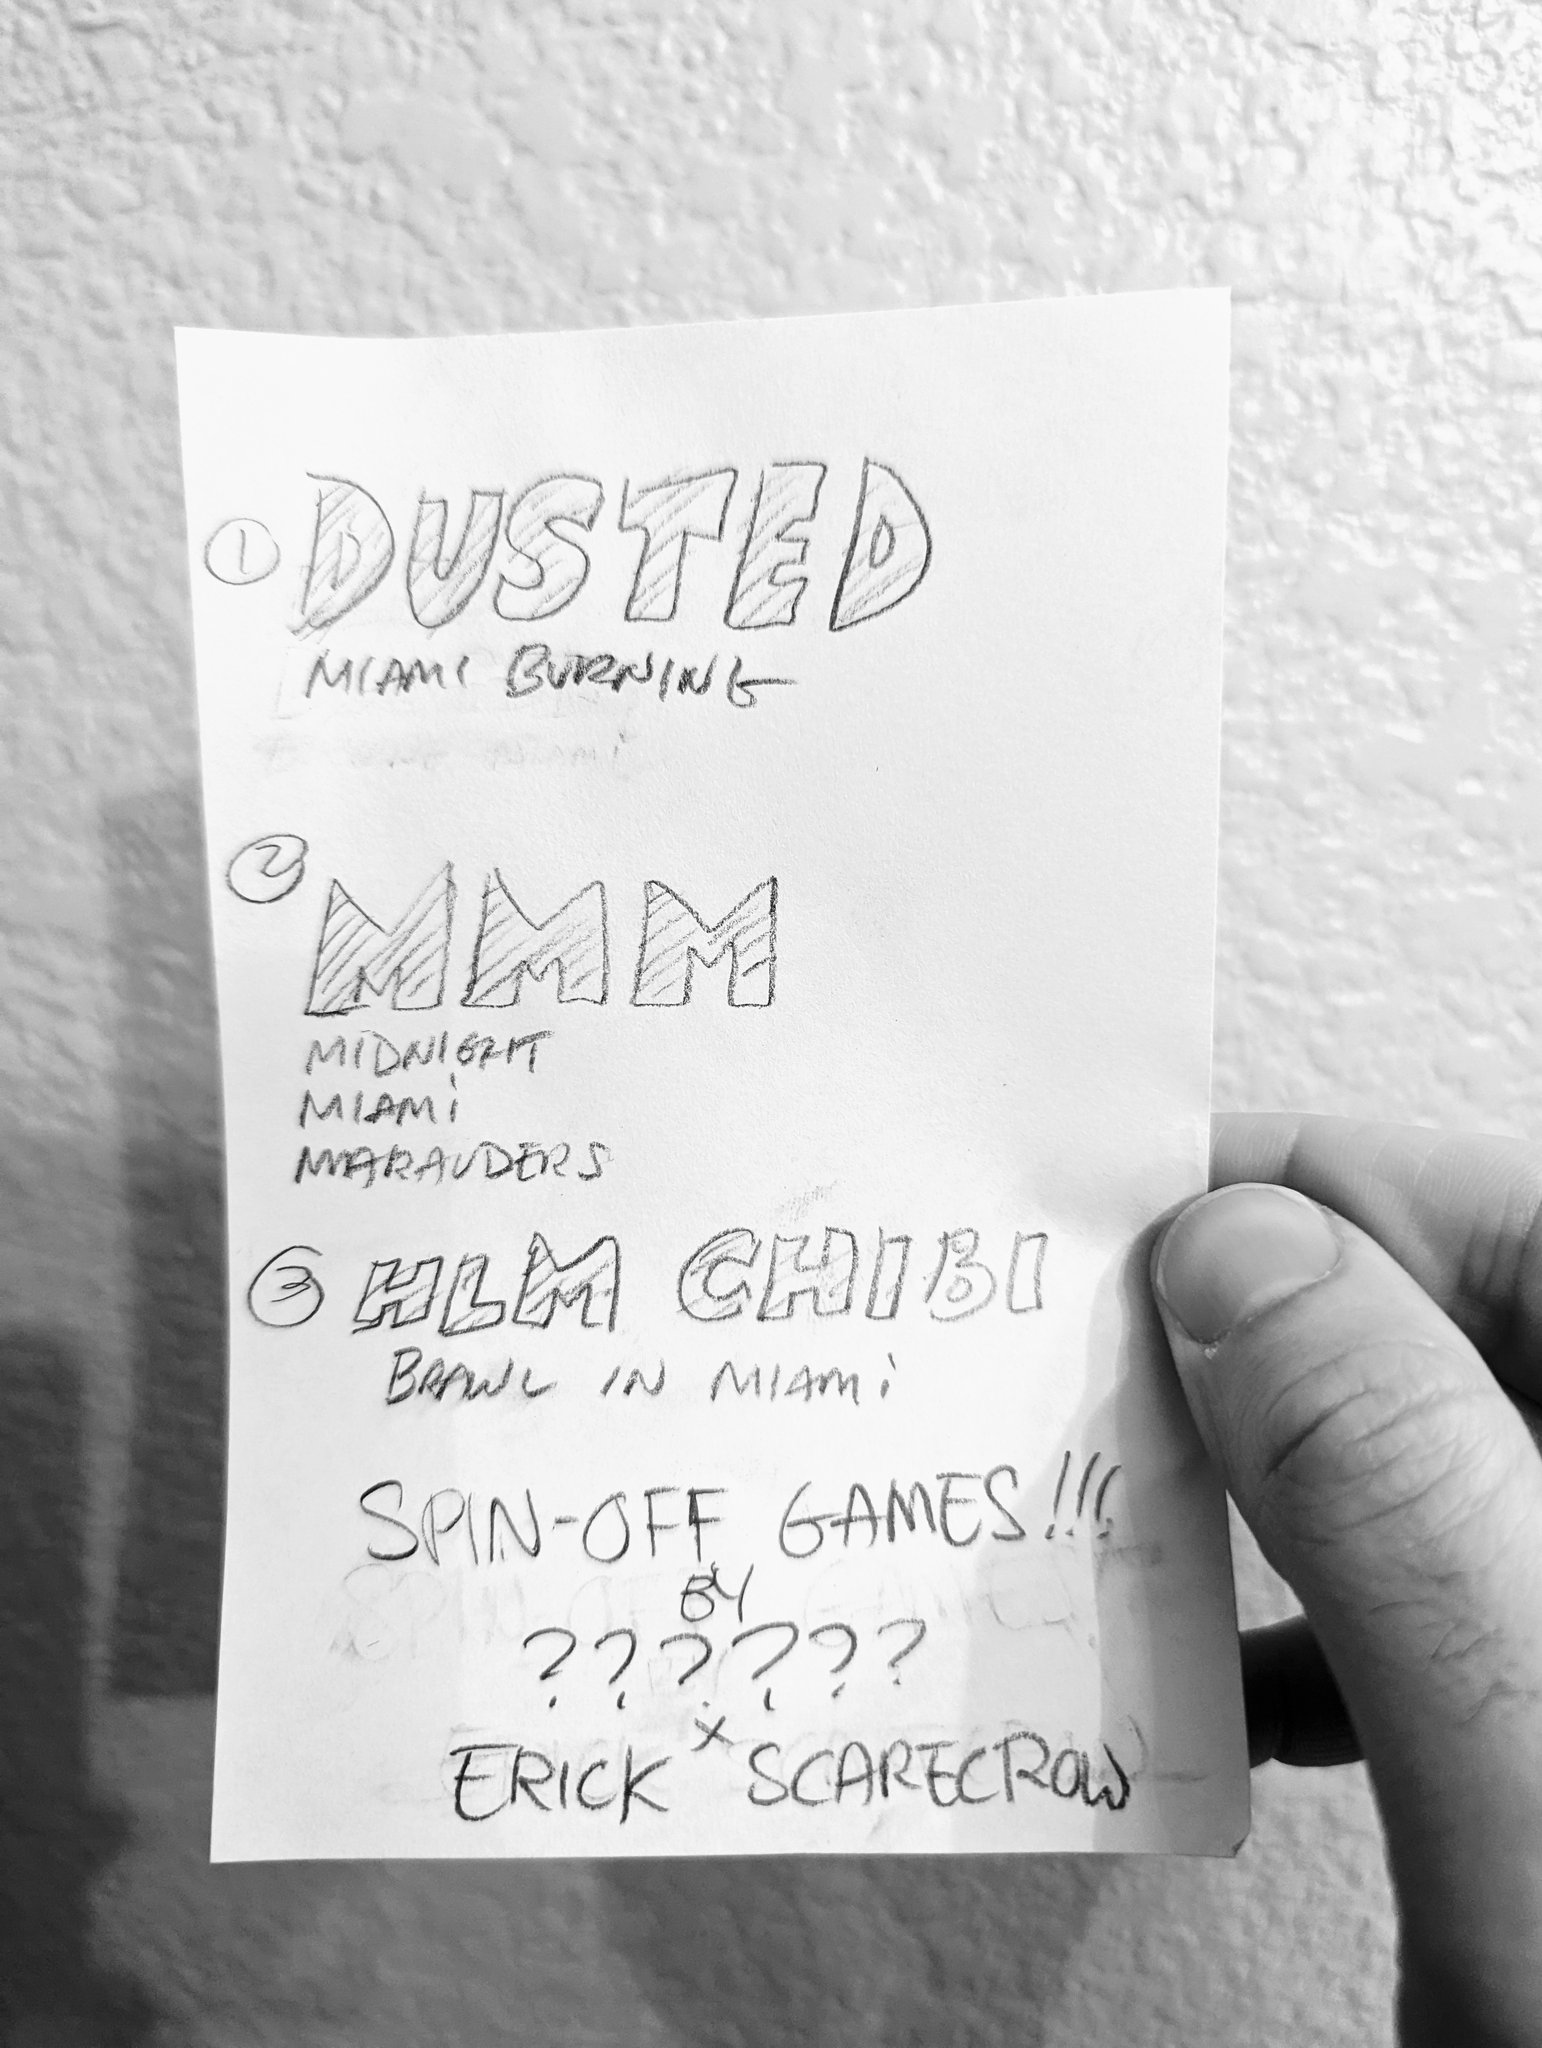 1 DUSTED
MIAMI BURNING
2
MMM
MIDNIGHT
MIAMi
MARAUDERS
3 HLM CHIBI
BRAWL IN MIAMi
SPIN-OFF GAMES!!!
BY
??????
x
ERICK SCARECROW